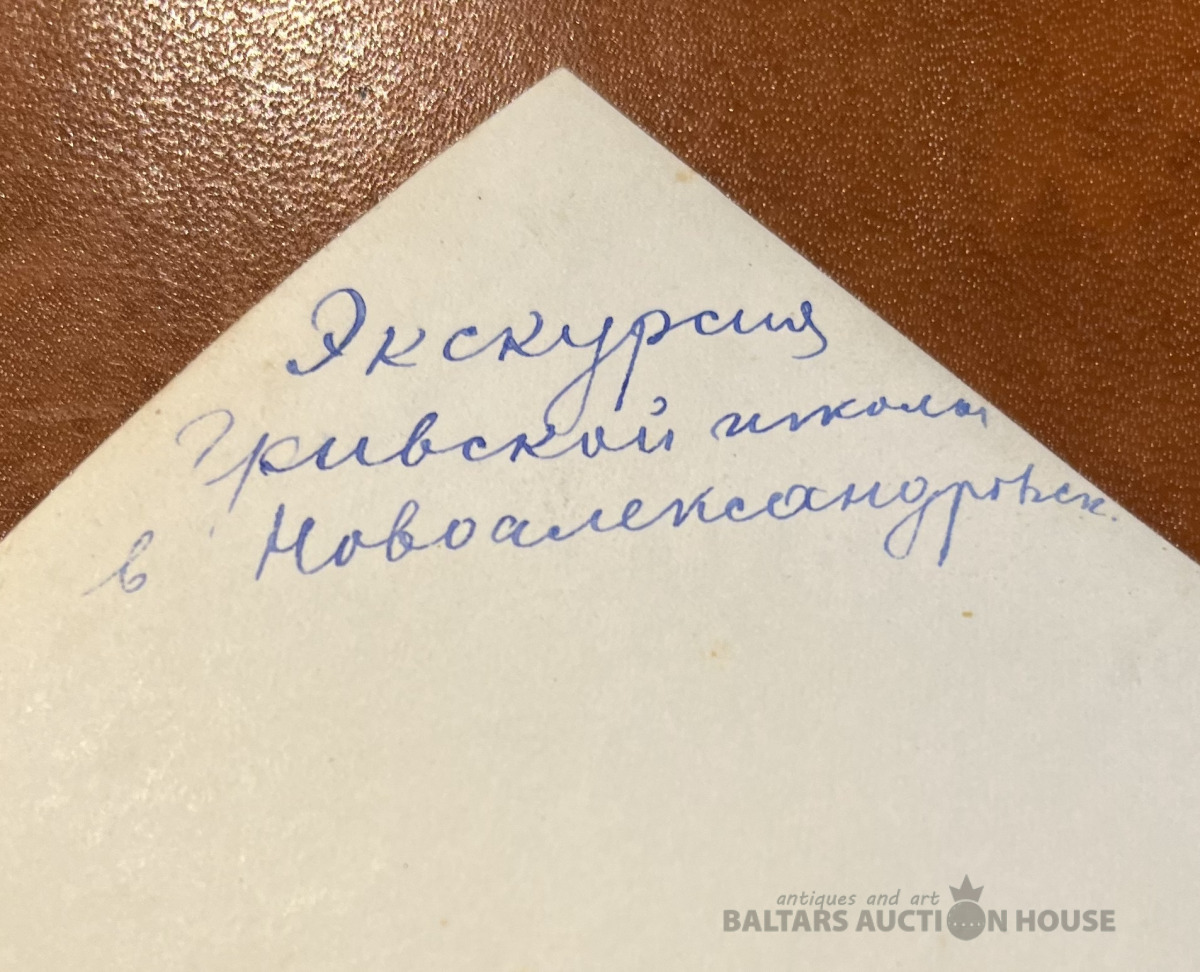 Экскурсия
Гривской школы
в Новоалександровск.
antiques and art
BALTARS AUCTION HOUSE